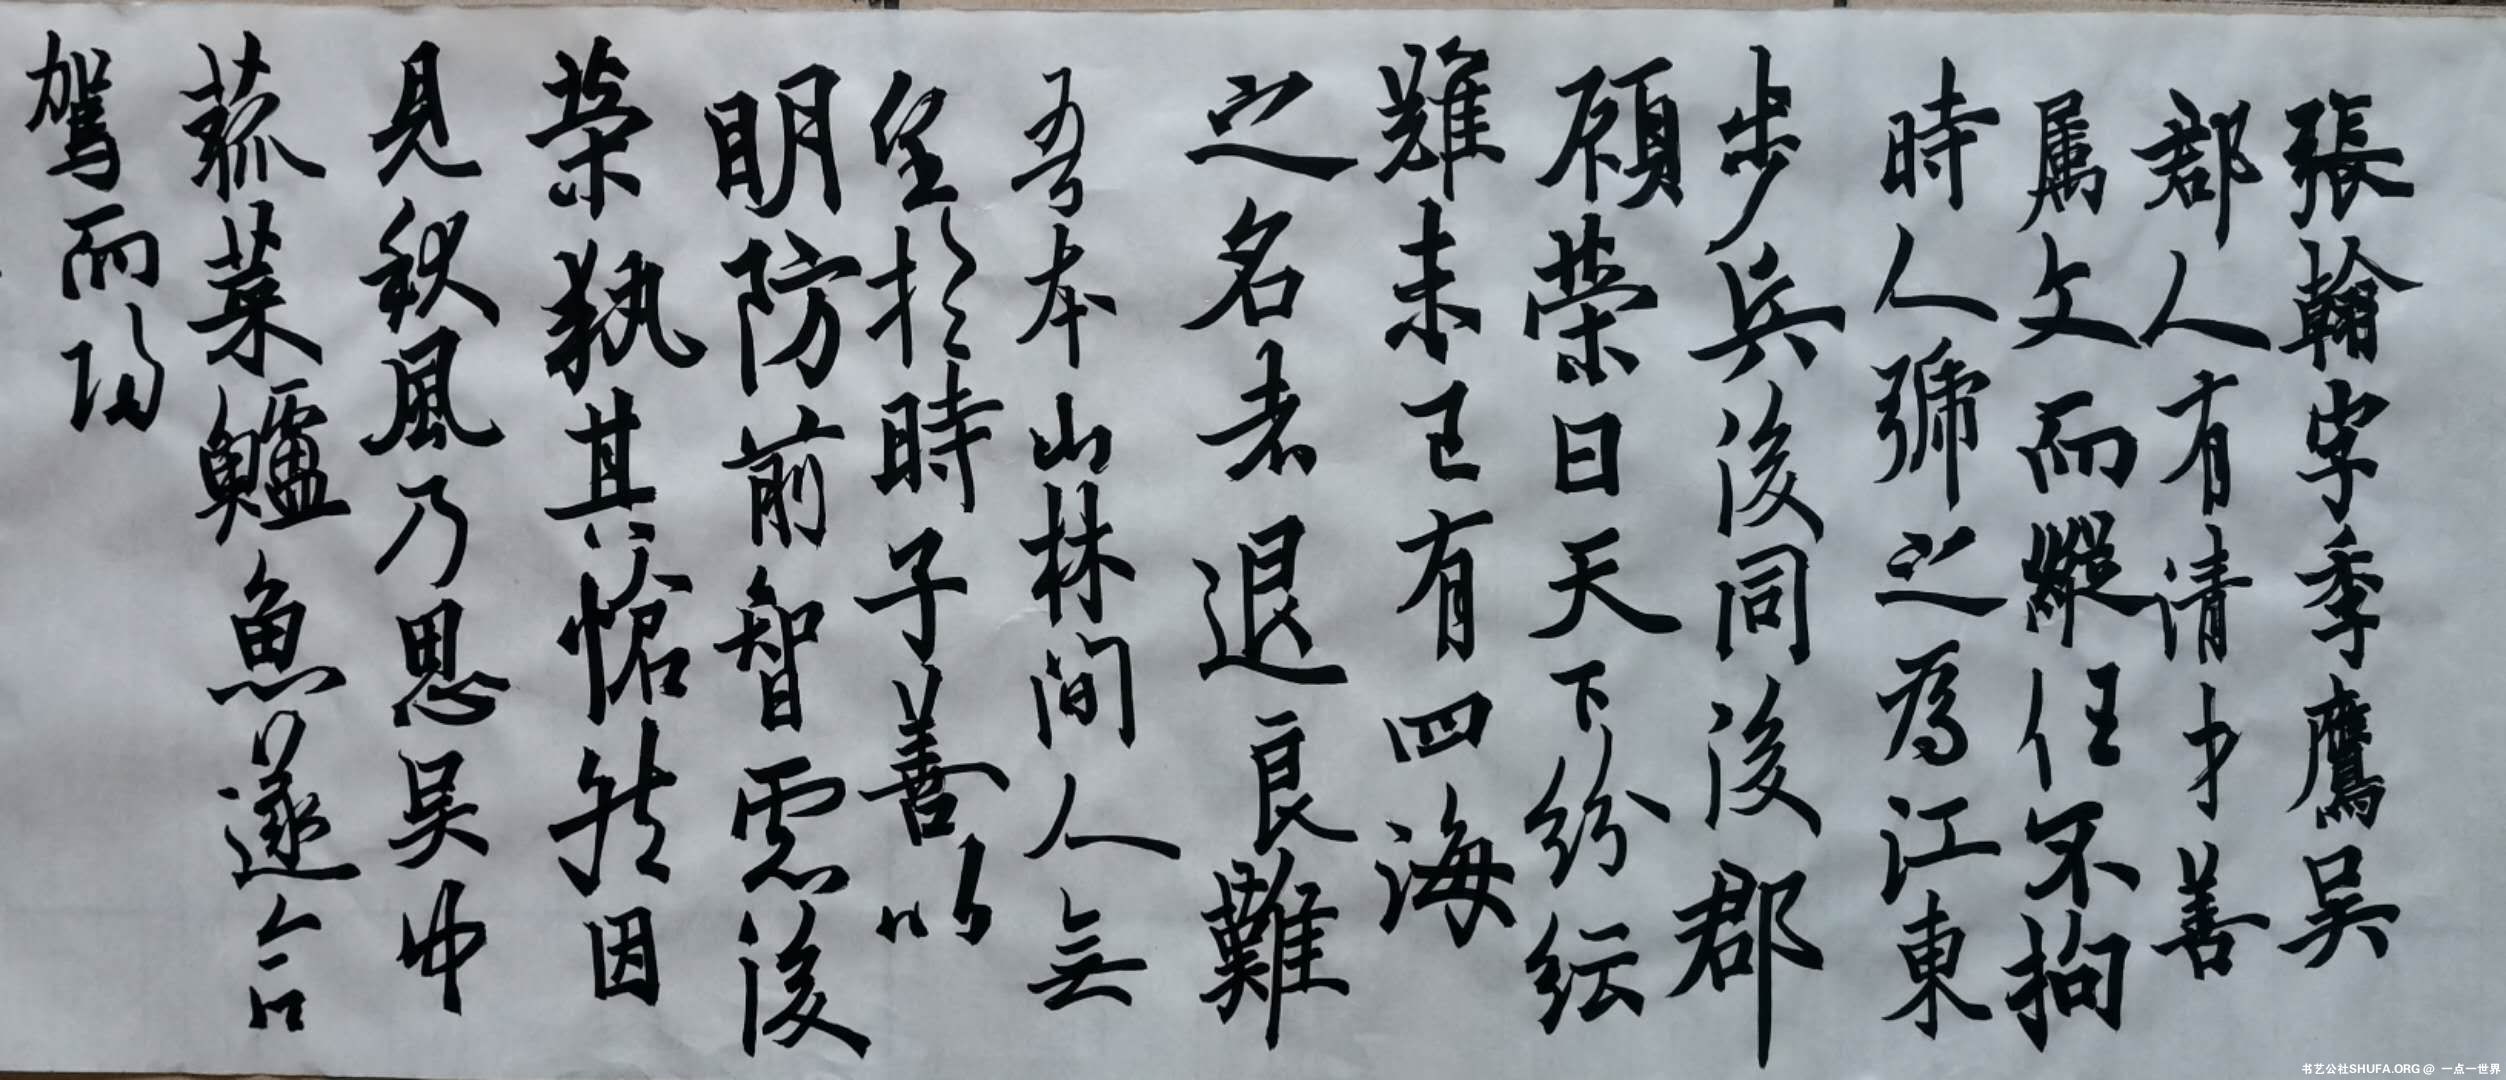 張翰字季鷹吳
郡人有清才善
属文而縱任不拘
時人號之為江東
步兵後同後郡
顧榮曰天下紛紜
難未已有四海
之名者退良難
吾本山林间人無
望於時子善以
明防前智慮後
榮執其愴然因
見秋風乃思吳中
菰菜鱸魚遂命
駕而归
书艺公社SHUFA.ORG @ 一点一世界